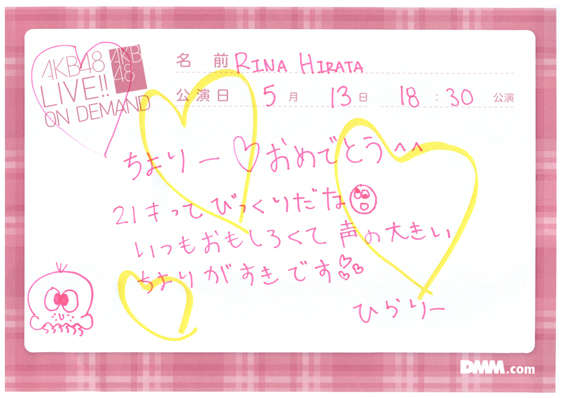 AKB48
LIVE!!
ON DEMAND
AKB
48
名前 RINA HIRATA
公演日 5月 13日 18:30 公演
ちよりー♡おめでとう^^
21キってびっくりだな
いつもおもしろくて声の大きい
ちよりがすきです
ひらりー
DMM.com